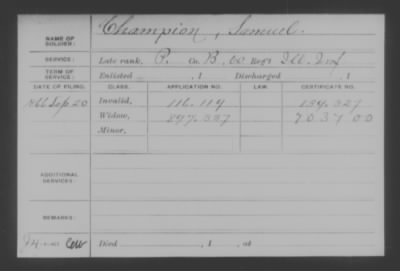 NAME OF SOLDIER: Champion, Samuel.
SERVICE: Late rank, P. Co. B, 60 Reg't Ill. Inf
TERM OF SERVICE: Enlisted , 1 Discharged , 1
DATE OF FILING. CLASS. APPLICATION NO. LAW. CERTIFICATE NO.
1866 Sep 20 Invalid, 116.119 139.327
Widow, 897.337 703700
Minor,
ADDITIONAL SERVICES:
REMARKS:
Died , 1 , at